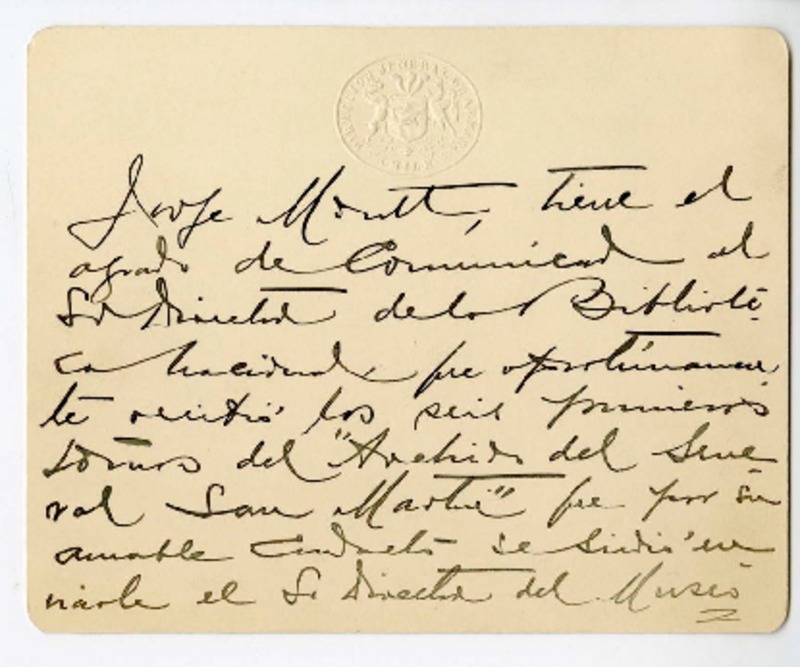 Jorge Montt, tiene el
agrado de Comunicar al
Sr Director de la Bibliote-
ca Nacional, que oportunamen-
te recibió los seis primeros
tomos del "Archivo del Gene-
ral San Martin" que por su
amable conducto se sirvió en-
viarle el Sr Director del Museo